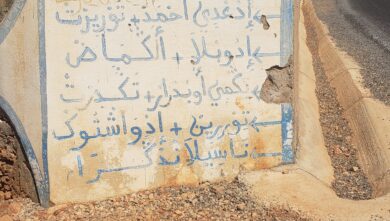 ← إدعدي أحمد + توريرت
← إدوبلا + أكماض
← تكمي أوبدرار + تكدرت
← توررين + إدواشتوك
← تاسلا نذكراء